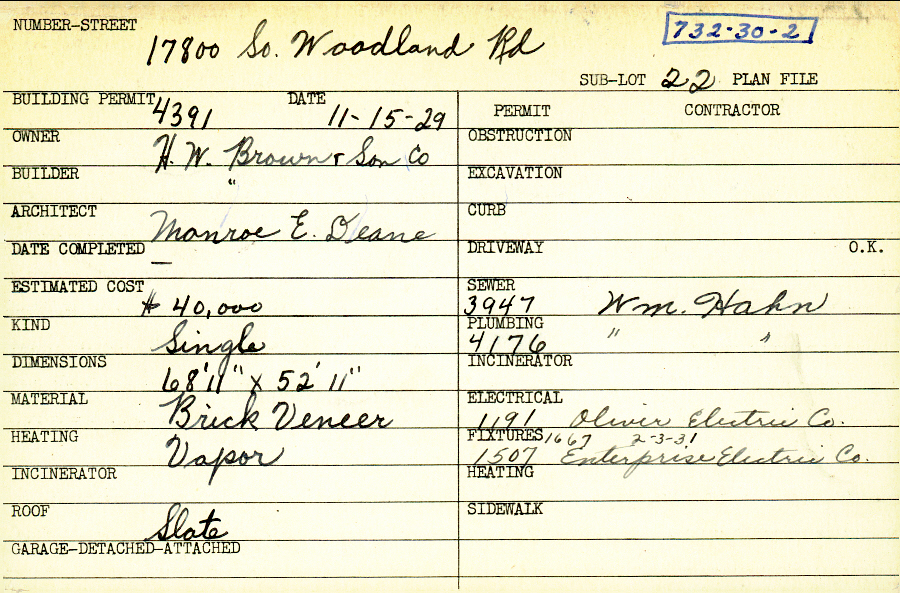 NUMBER-STREET
17800 So. Woodland Rd
732-30-2
SUB-LOT 22 PLAN FILE
BUILDING PERMIT 4391 DATE 11-15-29
PERMIT CONTRACTOR
OWNER H. W. Brown & Son Co
OBSTRUCTION
BUILDER "
EXCAVATION
ARCHITECT Monroe E. Deane
CURB
DATE COMPLETED —
DRIVEWAY O.K.
ESTIMATED COST $ 40,000
SEWER
3947 Wm. Hahn
KIND Single
PLUMBING
4176 " "
DIMENSIONS 68'11" x 52'11"
INCINERATOR
MATERIAL Brick Veneer
ELECTRICAL
1191 Oliver Electric Co.
HEATING Vapor
FIXTURES 1667 2-3-31
1507 Enterprise Electric Co.
INCINERATOR
HEATING
ROOF Slate
SIDEWALK
GARAGE-DETACHED-ATTACHED